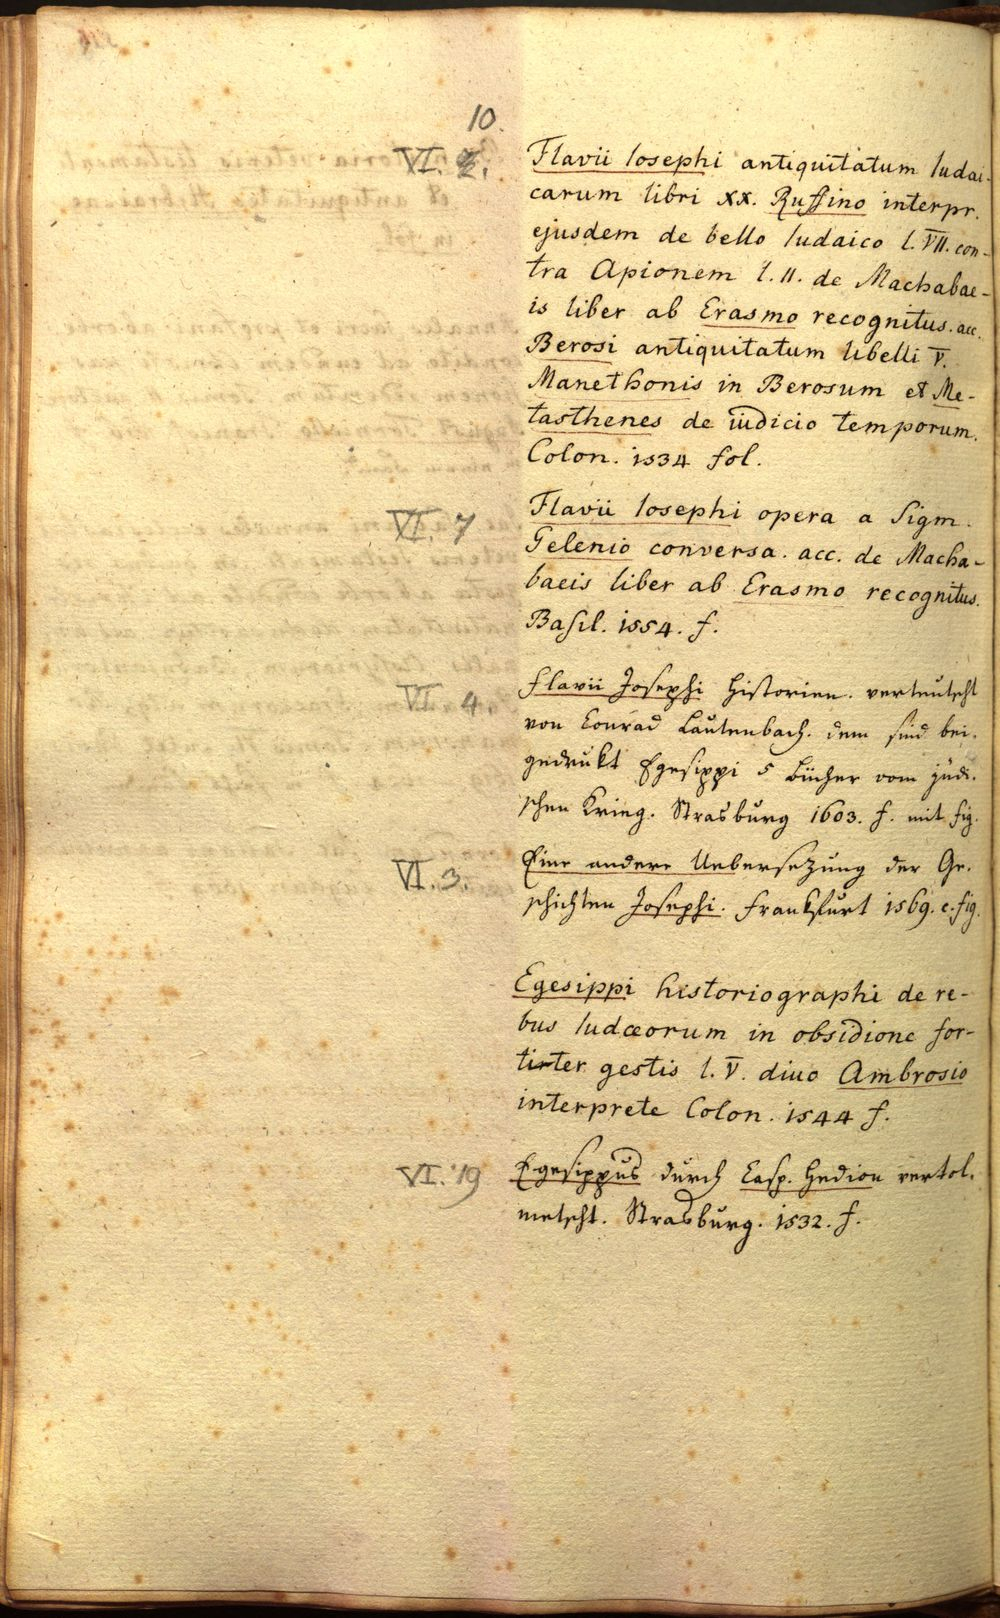 10.
VI. 2. Flavii Iosephi antiquitatum Iudai-
carum libri xx. Ruffino interpr.
ejusdem de bello Iudaico l. VII. con-
tra Apionem l. II. de Machabae-
is liber ab Erasmo recognitus. acc.
Berosi antiquitatum libelli V.
Manethonis in Berosum et Me-
tasthenes de iudicio temporum.
Colon. 1534 fol.
VI. 7 Flavii Iosephi opera a Sigm.
Gelenio conversa. acc. de Macha-
baeis liber ab Erasmo recognitus.
Basil. 1554. f.
VI. 4. Flavii Josephi Historien. verteutscht
von Conrad Lautenbach. dem sind bei-
gedrukt Egesippi 5 Bücher vom jüdi-
schen Krieg. Strasburg 1603. f. mit fig.
VI. 3. Eine andere Uebersetzung der Ge-
schichten Josephi. Frankfurt 1569. c. fig.
Egesippi historiographi de re-
bus Iudæorum in obsidione for-
titer gestis l. V. divo Ambrosio
interprete Colon. 1544 f.
VI. 19 Egesippus durch Casp. Hedion vertol-
metscht. Strasburg. 1532. f.